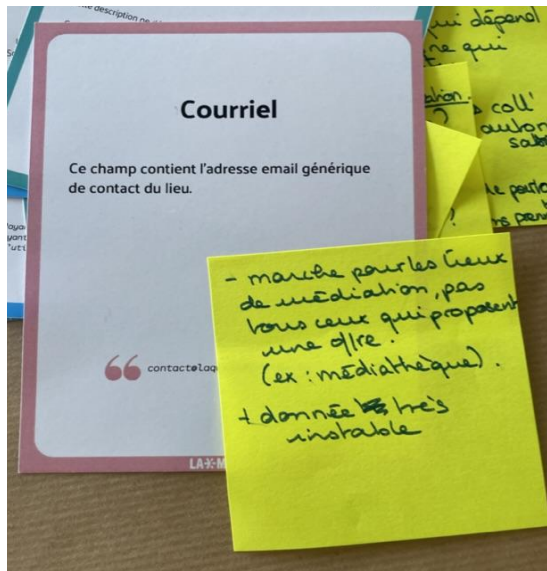 description
Courriel
Ce champ contient l'adresse email générique
de contact du lieu.
contact@laq
LA
M
- marche pour les lieux
de médiation, pas
tous ceux qui proposent
une offre.
(ex : médiathèque).
+ donnée très
instable
qui dépend
qui
coll'
?